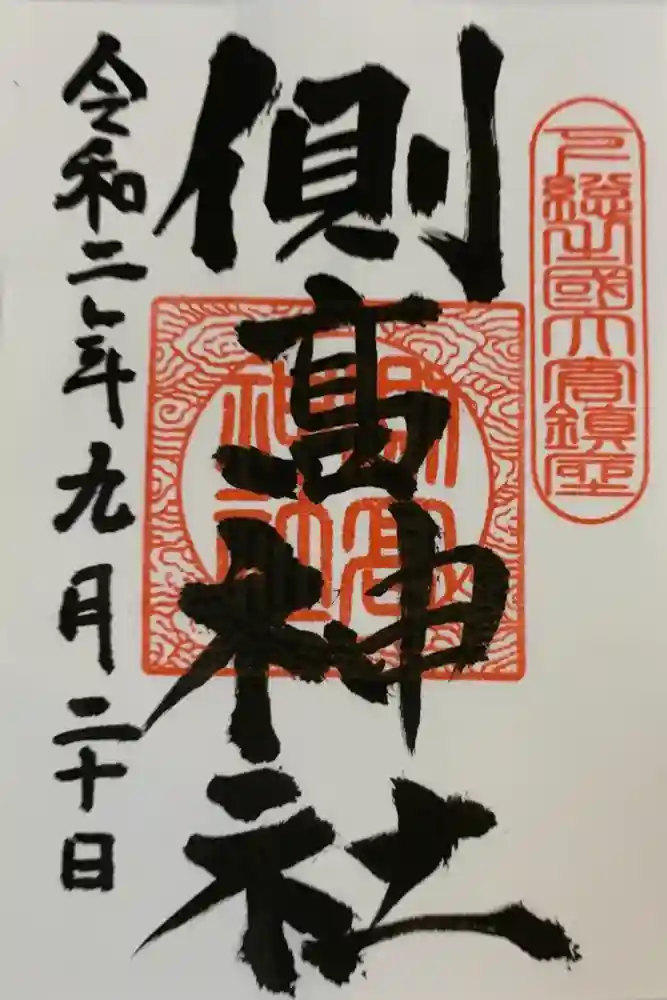 下総之國大倉鎮座
側髙神社
側髙神社
令和二年九月二十日